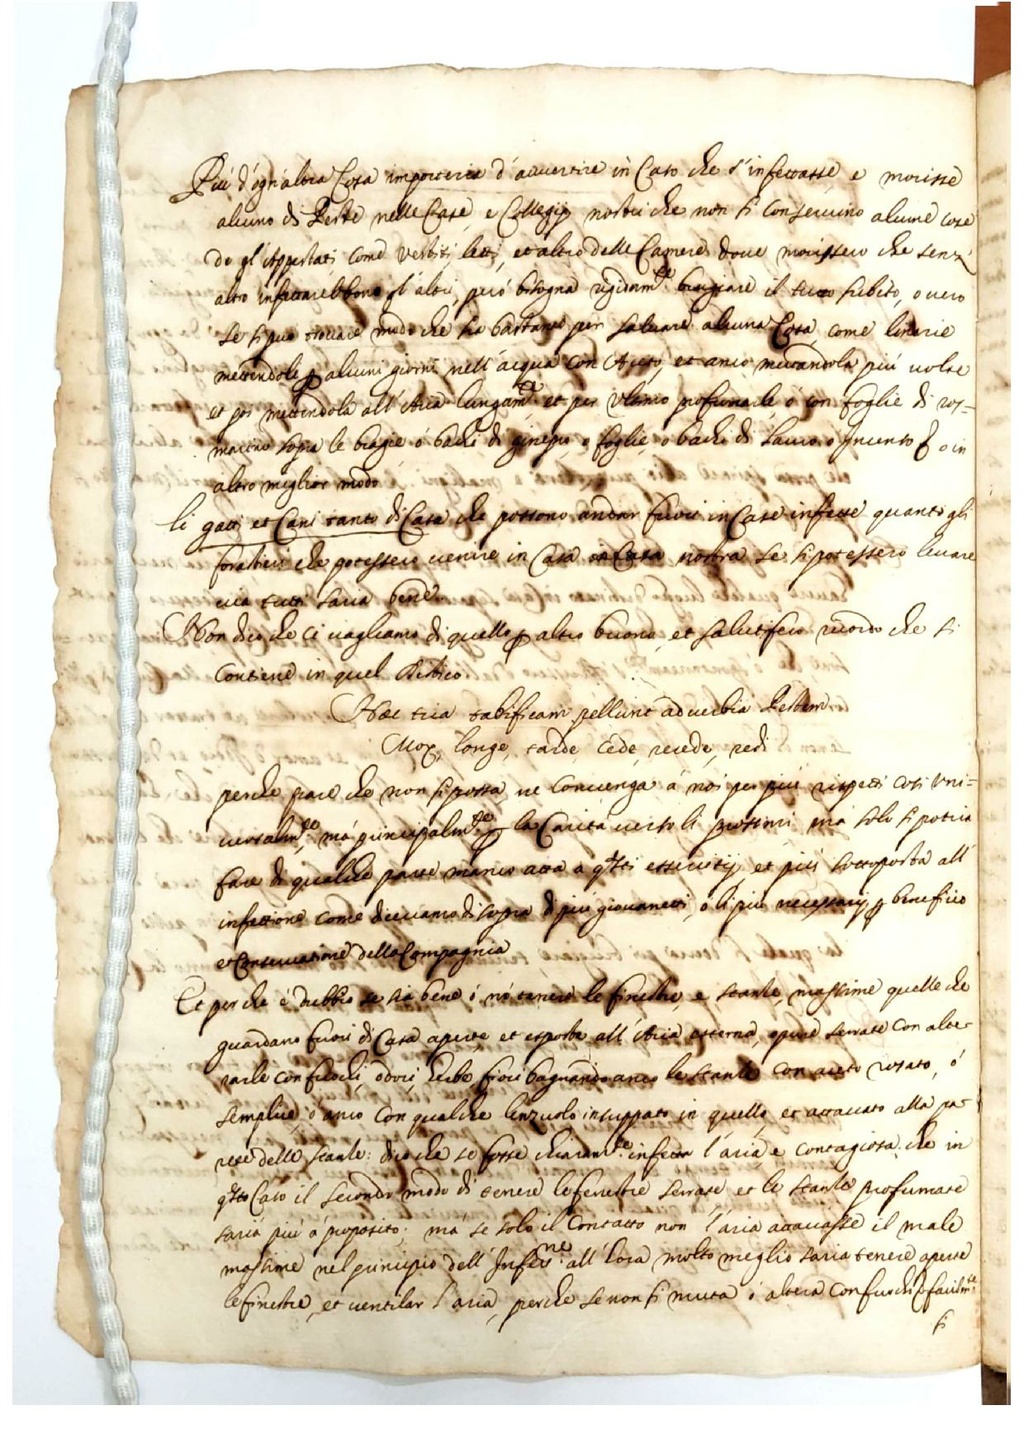 Più d'ogn'altra Cosa importeria d'avvertire in Caso che s'infettasse e morisse
alcuno di Peste nelle Case, e Collegij nostri che non si conservino alcune cose
de gl'Appestati, come vestiti, letti, et altro delle Camere dove morissero che senz'
altro infettarebbono gl'altri, però bisogna brugiare il tutto subito, o vero
se si può trovare modo che sia bastante per salvare alcuna Cosa, come
mettendole p alcuni giorni nell'acqua con Aceto, et anco mutandola più volte
et poi mettendola all'Aria lungam.te et per ultimo profumarle, ò con foglie di ros=
marino sopra le bragie ò bache di ginepro, o foglie, o bache di lauro, o o in
altro miglior modo
li gatti et Cani tanto di Casa che possono andar fuori in Case infette quanto gli
forastieri che potessero venire in Casa nostra se si potessero levare
via tutti saria bene.
Non dico che ci vagliamo di quello p altro buono, et salutifero ricordo che si
contiene in quel Distico
Haec tria tabificam pellunt adverbia Pestem
Mox, longe, tarde, cede, recede, redi
perche pare che non si possa, ne convenga à noi per più rispetti così uni=
versalm.te, mà principalm.te p la Carità verso li prossimi, ma solo si potria
fare di qualche parte manco atta a q.sti essercitij, et più sottoposta all'
infettione come dicevamo di sopra di più giovanetti, o li più necessarij p beneficio
et Conservatione della Compagnia
Et perche è dubbio se sia bene ò nò tenere le finestre, e stanze massime quelle che
guardano fuori di Casa aperte, et esposte all'Aria esterna, opure serrate con alte=
rarle con fuochi, odori, herbe, fiori bagnando anco le stanze con aceto rosato, ò
semplice, ò anco con qualche lenzuolo insuppato in quello, et attaccato alla pa=
rete delle stanze: dico che se fosse chiaram.te infetta l'aria, e contagiosa, che in
q.sto Caso il secondo modo di tenere le fenestre serrate et le stanze profumate
saria più a proposito; mà se solo il Contatto non l'aria attaccasse il male
massime nel principio dell'Infett.ne all'hora molto meglio saria tenere aperte
le finestre, et ventilar l'aria, perche se non si muta ò altera con fuochi facilm.te
si